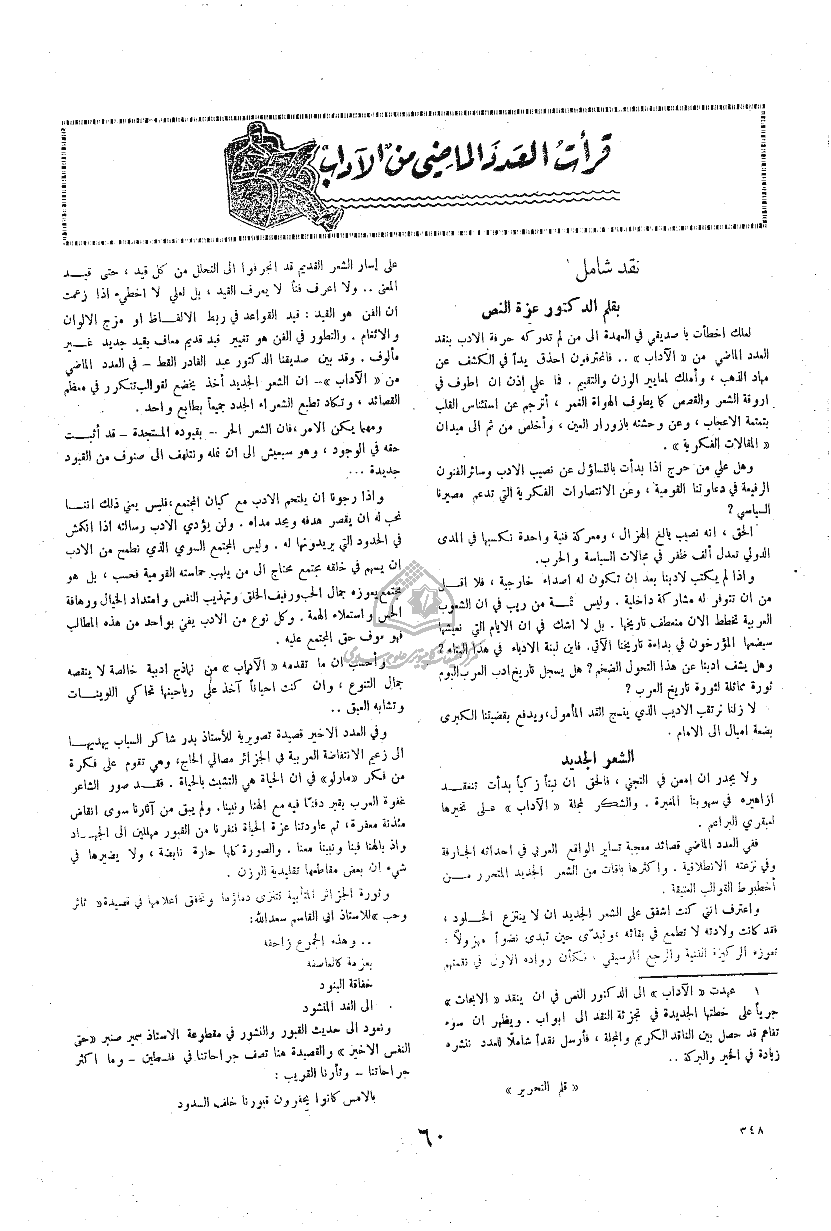 قرأت العدد الماضي من الآداب
نقد شامل ١
بقلم الدكتور عزة النص
لعلك اخطأت يا صديقي في العهدة الى من لم تدركه حرفة الادب بنقد
العدد الماضي من « الآداب » .. فالمحترفون احذق يداً في الكشف عن
مهاد الذهب ، وأملك لمعايير الوزن والتقييم . فما علي إذن ان اطوف في
اروقة الشعر والقصص كما يطوف الهواة الغمر ، أترجم عن استئناس القلب
بتمتمة الاعجاب ، وعن وحشته بازورار العين ، وأخلص من ثم الى ميدان
« المقالات الفكرية » .
وهل علي من حرج اذا بدأت بالتساؤل عن نصيب الادب وسائر الفنون
الرفيعة في دعاوتنا القومية ، وعن الانتصارات الفكرية التي تدعم مصيرنا
السياسي ؟
الحق ، انه نصيب بالغ الهزال ، ومعركة فنية واحدة نكسبها في المدى
الدولي تعدل ألف ظفر في مجالات السياسة والحرب.
و اذا لم يكتب لادبنا بعد ان تكون له اصداء خارجية ، فلا اقل
من ان تتوفر له مشاركة داخلية . وليس ثمة من ريب في ان الشعوب
العربية تخطط الان منعطف تاريخها . بل لا اشك في ان الايام التي نعيشها
سيضعها المؤرخون في بداءة تاريخنا الآتي. فاين لبنة الادباء في هذا البناء؟
وهل يشف ادبنا عن هذا التحول الضخم؟ هل يسجل تاريخ ادب العرب اليوم
ثورة مماثلة لثورة تاريخ العرب ?
لا زلنا نرتقب الاديب الذي ينسج الغد المأمول،ويدفع بقضيتنا الكبرى
بضعة اميال الى الامام .
الشعر الجديد
ولا يجدر ان امعن في التجني ، فالحق ان نبتاً زكياً بدأت تنعقد
ازاهيره في سهوبنا المغبرة . والشكر لمجلة « الآداب » على تخيرها
لعبقري البراعم .
ففي العدد الماضي قصائد معجبة تساير الواقع العربي في احداثه الجارفة
وفي نزعته الانطلاقية . واكثرها باقات من الشعر الجديد المتحرر من
أخطبوط القوالب العتيقة .
واعترف انني كنت اشفق على الشعر الجديد ان لا ينتزع الخلود ،
فقد كانت ولادته لا تطمع في بقائه ،وتبدّى حين تبدى نضواً مهزولاً :
تعوزه الركيزة الفنية والرجع الموسيقي ، فكأن رواده الاول في نقمتهم
١ عهدت « الآداب » الى الدكتور النص في ان ينقد « الابحاث »
جرياً على خطتها الجديدة في تجزئة النقد الى ابواب . ويظهر ان سوء
تفاهم قد حصل بين الناقد الكريم والمجلة ، فأرسل نقداً شاملًا للعدد ننشره
زيادة في الخير والبركة ..
« قلم التحرير »
على إسار الشعر القديم قد انجرفوا الى التحلل من كل قيد ، حتى قيد
المعنى .. ولا اعرف فناً لا يعرف القيد ، بل لعلي لا اخطىء اذا زعمت
ان الفن هو القيد : قيد القواعد في ربط الالفاظ او مزج الالوان
والانغام . والتطور في الفن هو تغيير قيد قديم معاف بقيد جديد غير
مألوف . وقد بين صديقنا الدكتور عبد القادر القط – في العدد الماضي
من « الآداب »– ان الشعر الجديد أخذ يخضع لقوالب تتكرر في معظم
القصائد ، وتكاد تطبع الشعراء الجدد جميعاً بطابع واحد .
ومهما يكن الامر،فان الشعر الحر – بقيوده المستجدة – قد أثبت
حقه في الوجود ، وهو سيعيش الى ان نمله ونتلهف الى صنوف من القيود
جديدة ...
و اذا رجونا ان يلتحم الادب مع كيان المجتمع،فليس يعني ذلك اننا
نحب له ان يقصر هدفه ويحد مداه . ولن يؤدي الادب رسالته اذا انكمش
في الحدود التي يريدونها له . وليس المجتمع السوي الذي نطمح من الادب
ان يسهم في خلقه بمجتمع محتاج الى من يلهب حماسته القومية فحسب ، بل هو
مجتمع يعوزه جمال الحب ورفيف الخلق وتهذيب النفس وامتداد الخيال ورهافة
الحس واستعلاء الهمة . وكل نوع من الادب يفي بواحد من هذه المطالب
فهو موف حق المجتمع عليه .
وأحسب ان ما تقدمه « الآداب » من نماذج ادبية خالصة لا ينقصه
جمال التنوع ، وان كنت احياناً آخذ على رياحينها تحاكي اللوينات
وتشابه العبق ..
وفي العدد الاخير قصيدة تصويرية للأستاذ بدر شاكر السياب يهديها
الى زعيم الانتفاضة العربية في الجزائر مصالي الحاج، وهي تقوم على فكرة
من فكر «مارلو» في ان الحياة هي التشبث بالحياة . فقد صور الشاعر
غفوة العرب بقبر دفنّا فيه مع الهنا ونبينا. ولم يبق من آثارنا سوى انقاض
مئذنة معفرة، ثم عاودتنا عزة الحياة فنفرنا من القبور مهللين الى الجهاد
واذ بالهنا فينا ونبينا معنا . والصورة كلها حارة نابضة ، ولا يضيرها في
شيء ان بعض مقاطعها تقليدية الوزن .
وثورة الجزائر المتأبية تتنزى دماؤها وتخفق اعلامها في قصيدة« ثائر
وحب »للاستاذ ابي القاسم سعدالله:
.. وهذه الجموع زاحفه
بعزمة كالعاصفه
خفاقة البنود
الى الغد المنشود
ونعود الى حديث القبور والنشور في مقطوعة الاستاذ سمير صنبر «حتى
النفس الاخير » والقصيدة هنا تصف جراحاتنا في فلسطين – وما اكثر
جراحاتنا – وثأرنا القريب :
بالامس كانوا يحفرون قبورنا خلف السدود
٦٠
٣٤٨